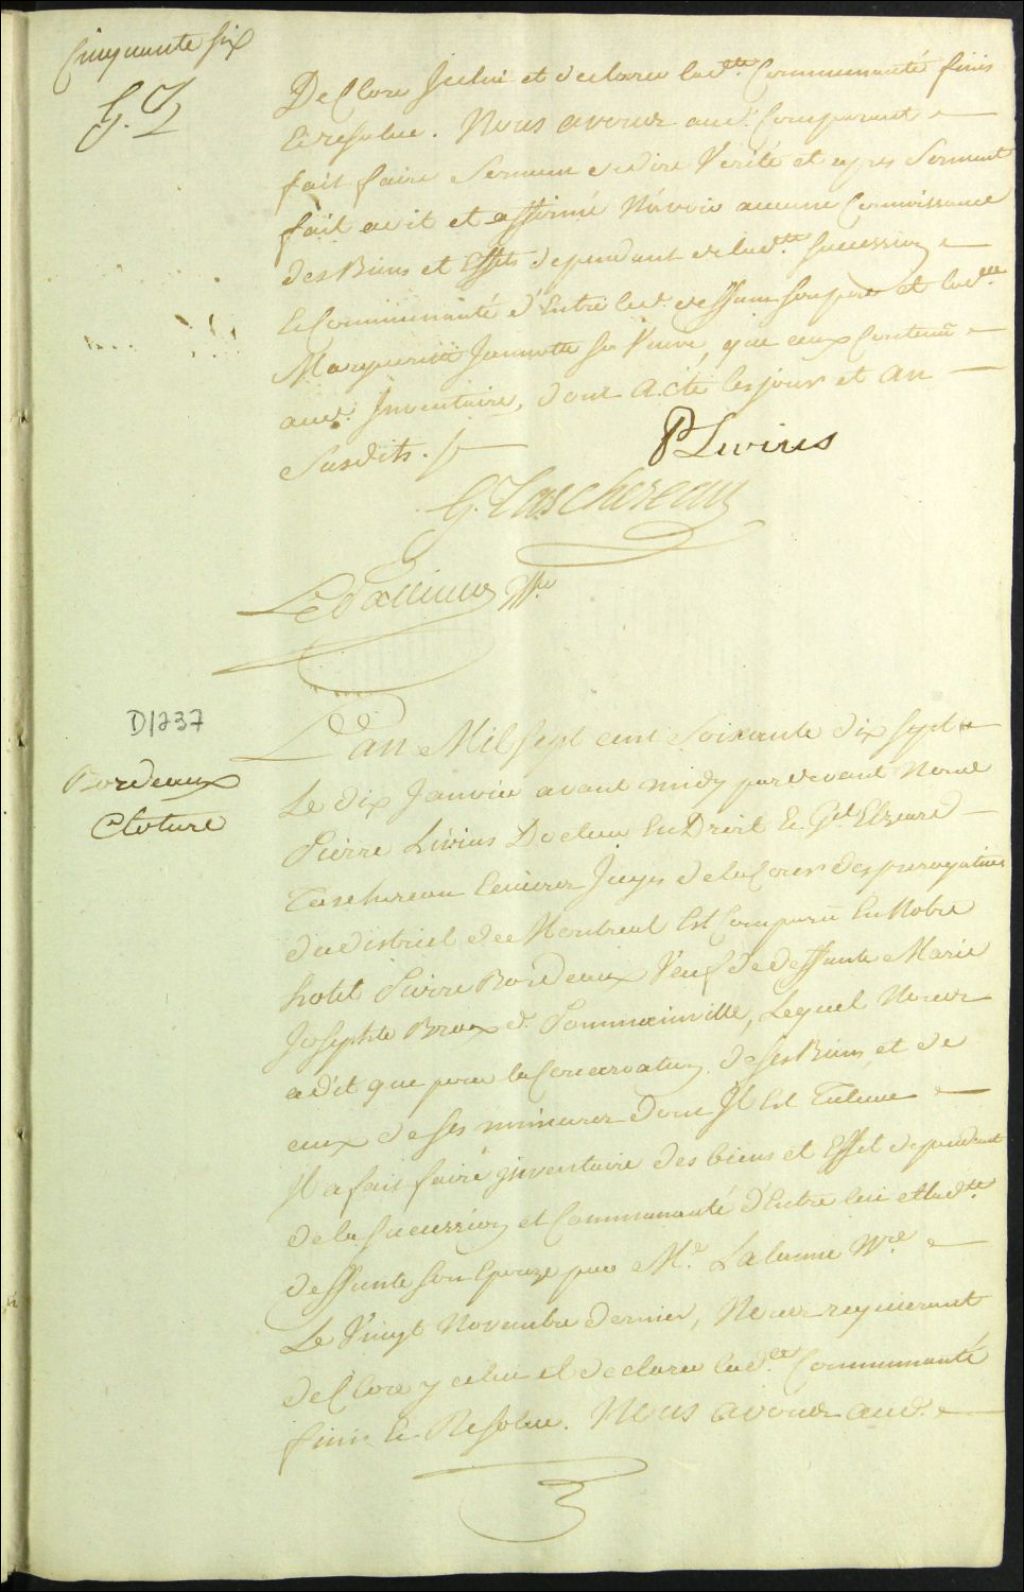 Cinquante six
G. T
De Clore Icelui et declarer lad.te Communauté finis
Et resolue. Nous avons aud. Comparant
fait faire Serment de dire Vérité et apres Serment
fait a dit et affirmé N'avoir aucune Connoissance
des Biens et Effets dependant de lad.te Succession
Et Communauté d'Entre led. deffunt son pere et lad.te
Marguerite Jannotte sa Veuve, que ceux Contenu
aud. Inventaire, dont Acte les jour et An
Susdits.
P Livius
G. Taschereau
LeDallunes Gffr
D1237
Bordeaux
Cloture
L'an Mil Sept cent Soixante dix Sept
Le dix Janvier avant midy pardevant Nous
Pierre Livius Docteur En Droit Et G.el Elzeard
Taschereau Ecuiers Juges de la Cour des prerogatives
du district de Montreal Est Comparu En Notre
hotel Pierre Bordeaux Veuf de deffunte Marie
Josephte Brox d. Pommainville, Lequel Nous
a dit que pour la Conservation de ses Biens et de
ceux de ses mineurs dont Il Est Tuteur
Il a fait faire inventaire des biens et Effet dependant
de la Succession et Communauté d'Entre lui et lad.te
deffunte son Epouze par M.e Lalanne N.re
Le Vingt Novembre dernier, Nous requerant
de Clore ycelui et declarer lad.te Communauté
finis Et Resolue. Nous avons aud.